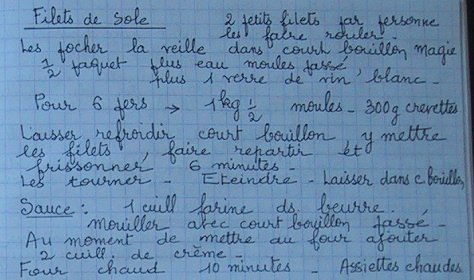 Filets de Sole 2 petits filets par personne
les faire rouler.
Les pocher la veille dans court bouillon Magie
1/2 paquet plus eau moules passé
plus 1 verre de vin blanc.
Pour 6 pers → 1 kg 1/2 moules - 300g crevettes
Laisser refroidir court bouillon, y mettre
les filets, faire repartir et
frissonner 6 minutes -
Les tourner - Eteindre - Laisser dans c. bouillon
Sauce : 1 cuill farine ds. beurre.
mouiller avec court bouillon passé -
Au moment de mettre au four ajouter
2 cuill. de crème -
Four chaud 10 minutes - Assiettes chaudes